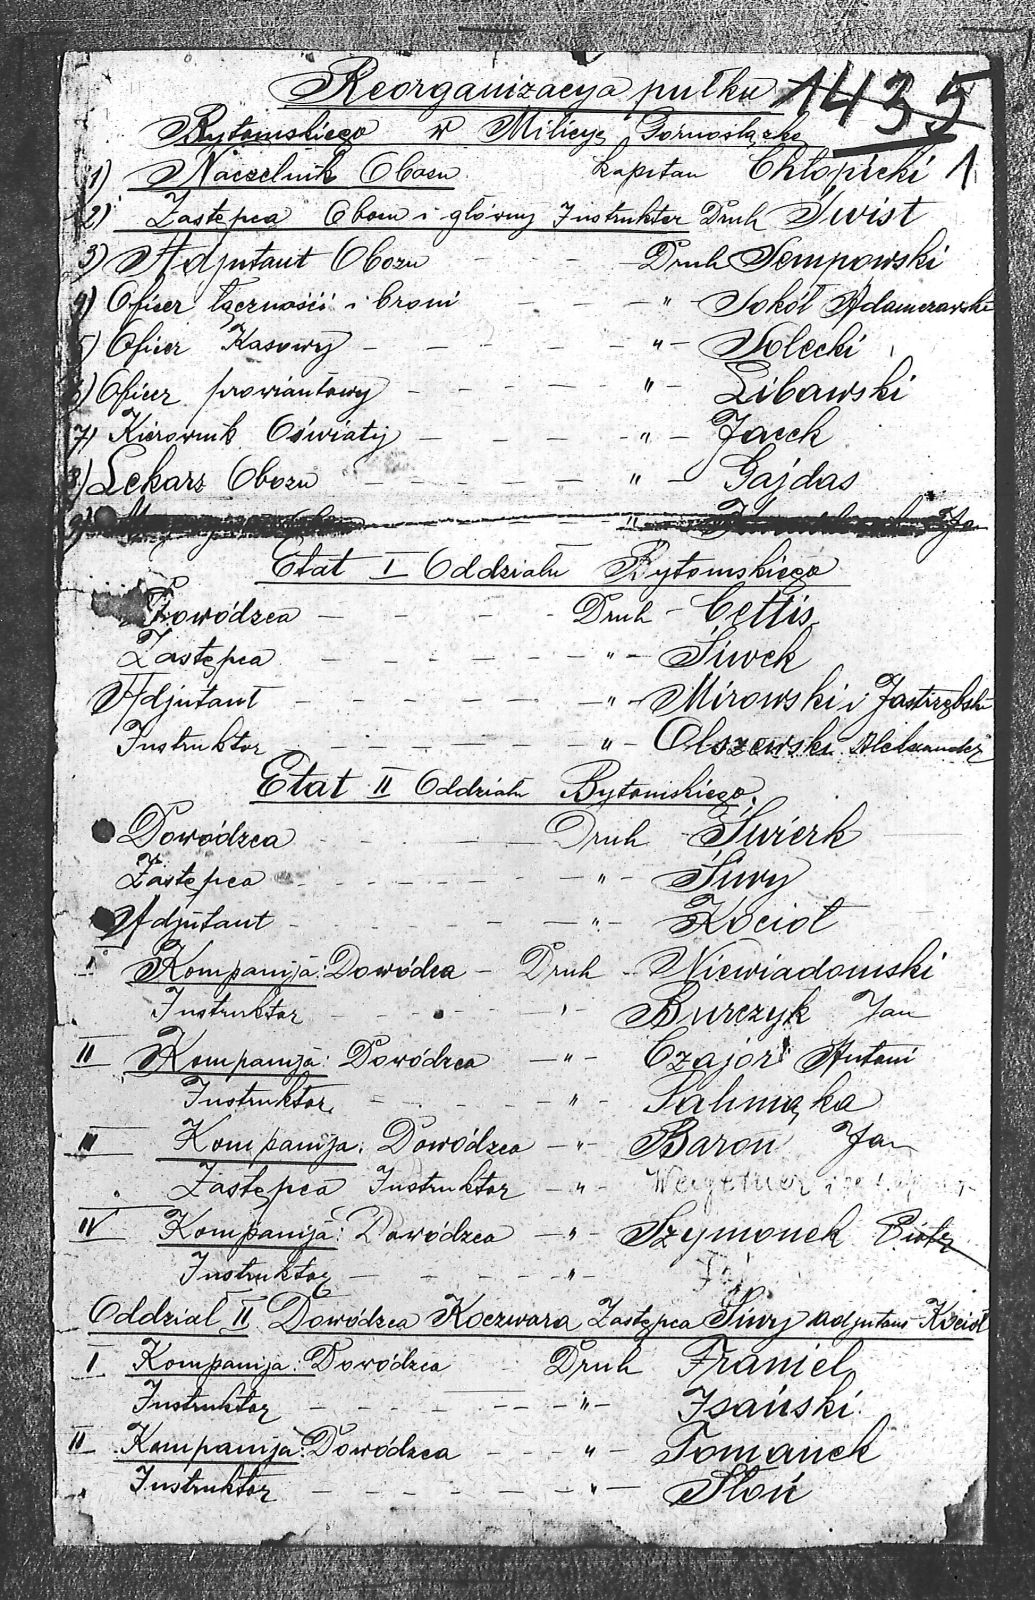 Reorganizacya pułku 1435
Bytomskiego w Milicyę Górnośląską 1
1) Naczelnik Obozu kapitan Chłopicki
2) Zastępca Obozu i główny Instruktor Druh Świst
3) Adjutant Obozu - - - Druh Sempowski
4) Oficer łączności i broni - - - " - Sokół Adamczewski
5) Oficer Kasowy - - - - - " - Solecki
6) Oficer prowiantowy - - - - - " - Libawski
7) Kierownik Oświaty - - - - - " - Jacek
8) Lekarz Obozu - - - - - " - Gajdas
9)
Etat I Oddziału Bytomskiego
Dowódzca - - - - Druh - Cettis
Zastępca - - - - - - " - Siwek
Adjutant - - - - - - " - Mirowski i Jastrzębski
Instruktor - - - - - " - Olszewski Aleksander
Etat II Oddziału Bytomskiego
Dowódzca - - - - Druh - Świerk
Zastępca - - - - - - " - Siwy
Adjutant - - - - - " - Kocioł
I Kompanija: Dowódca - Druh - Niewiadomski
Instruktor - - - - - " - Burczyk Jan
II Kompanija: Dowódzca - " - Czajor Antoni
Instruktor - - - - - " -
III Kompanija: Dowódzca - " - Baron Jan
Zastępca Instruktor - " -
IV Kompanija: Dowódzca - " - Szymonek Piotr
Instruktor - - - - - " -
Oddział II Dowódzca Koczwara Zastępca Siwy adjutant Kocioł
I Kompanija: Dowódzca - Druh Franiel
Instruktor - - - - - " - Isański
II Kompanija: Dowódzca - - - " - Tomanek
Instruktor - - - - - " - Słoń